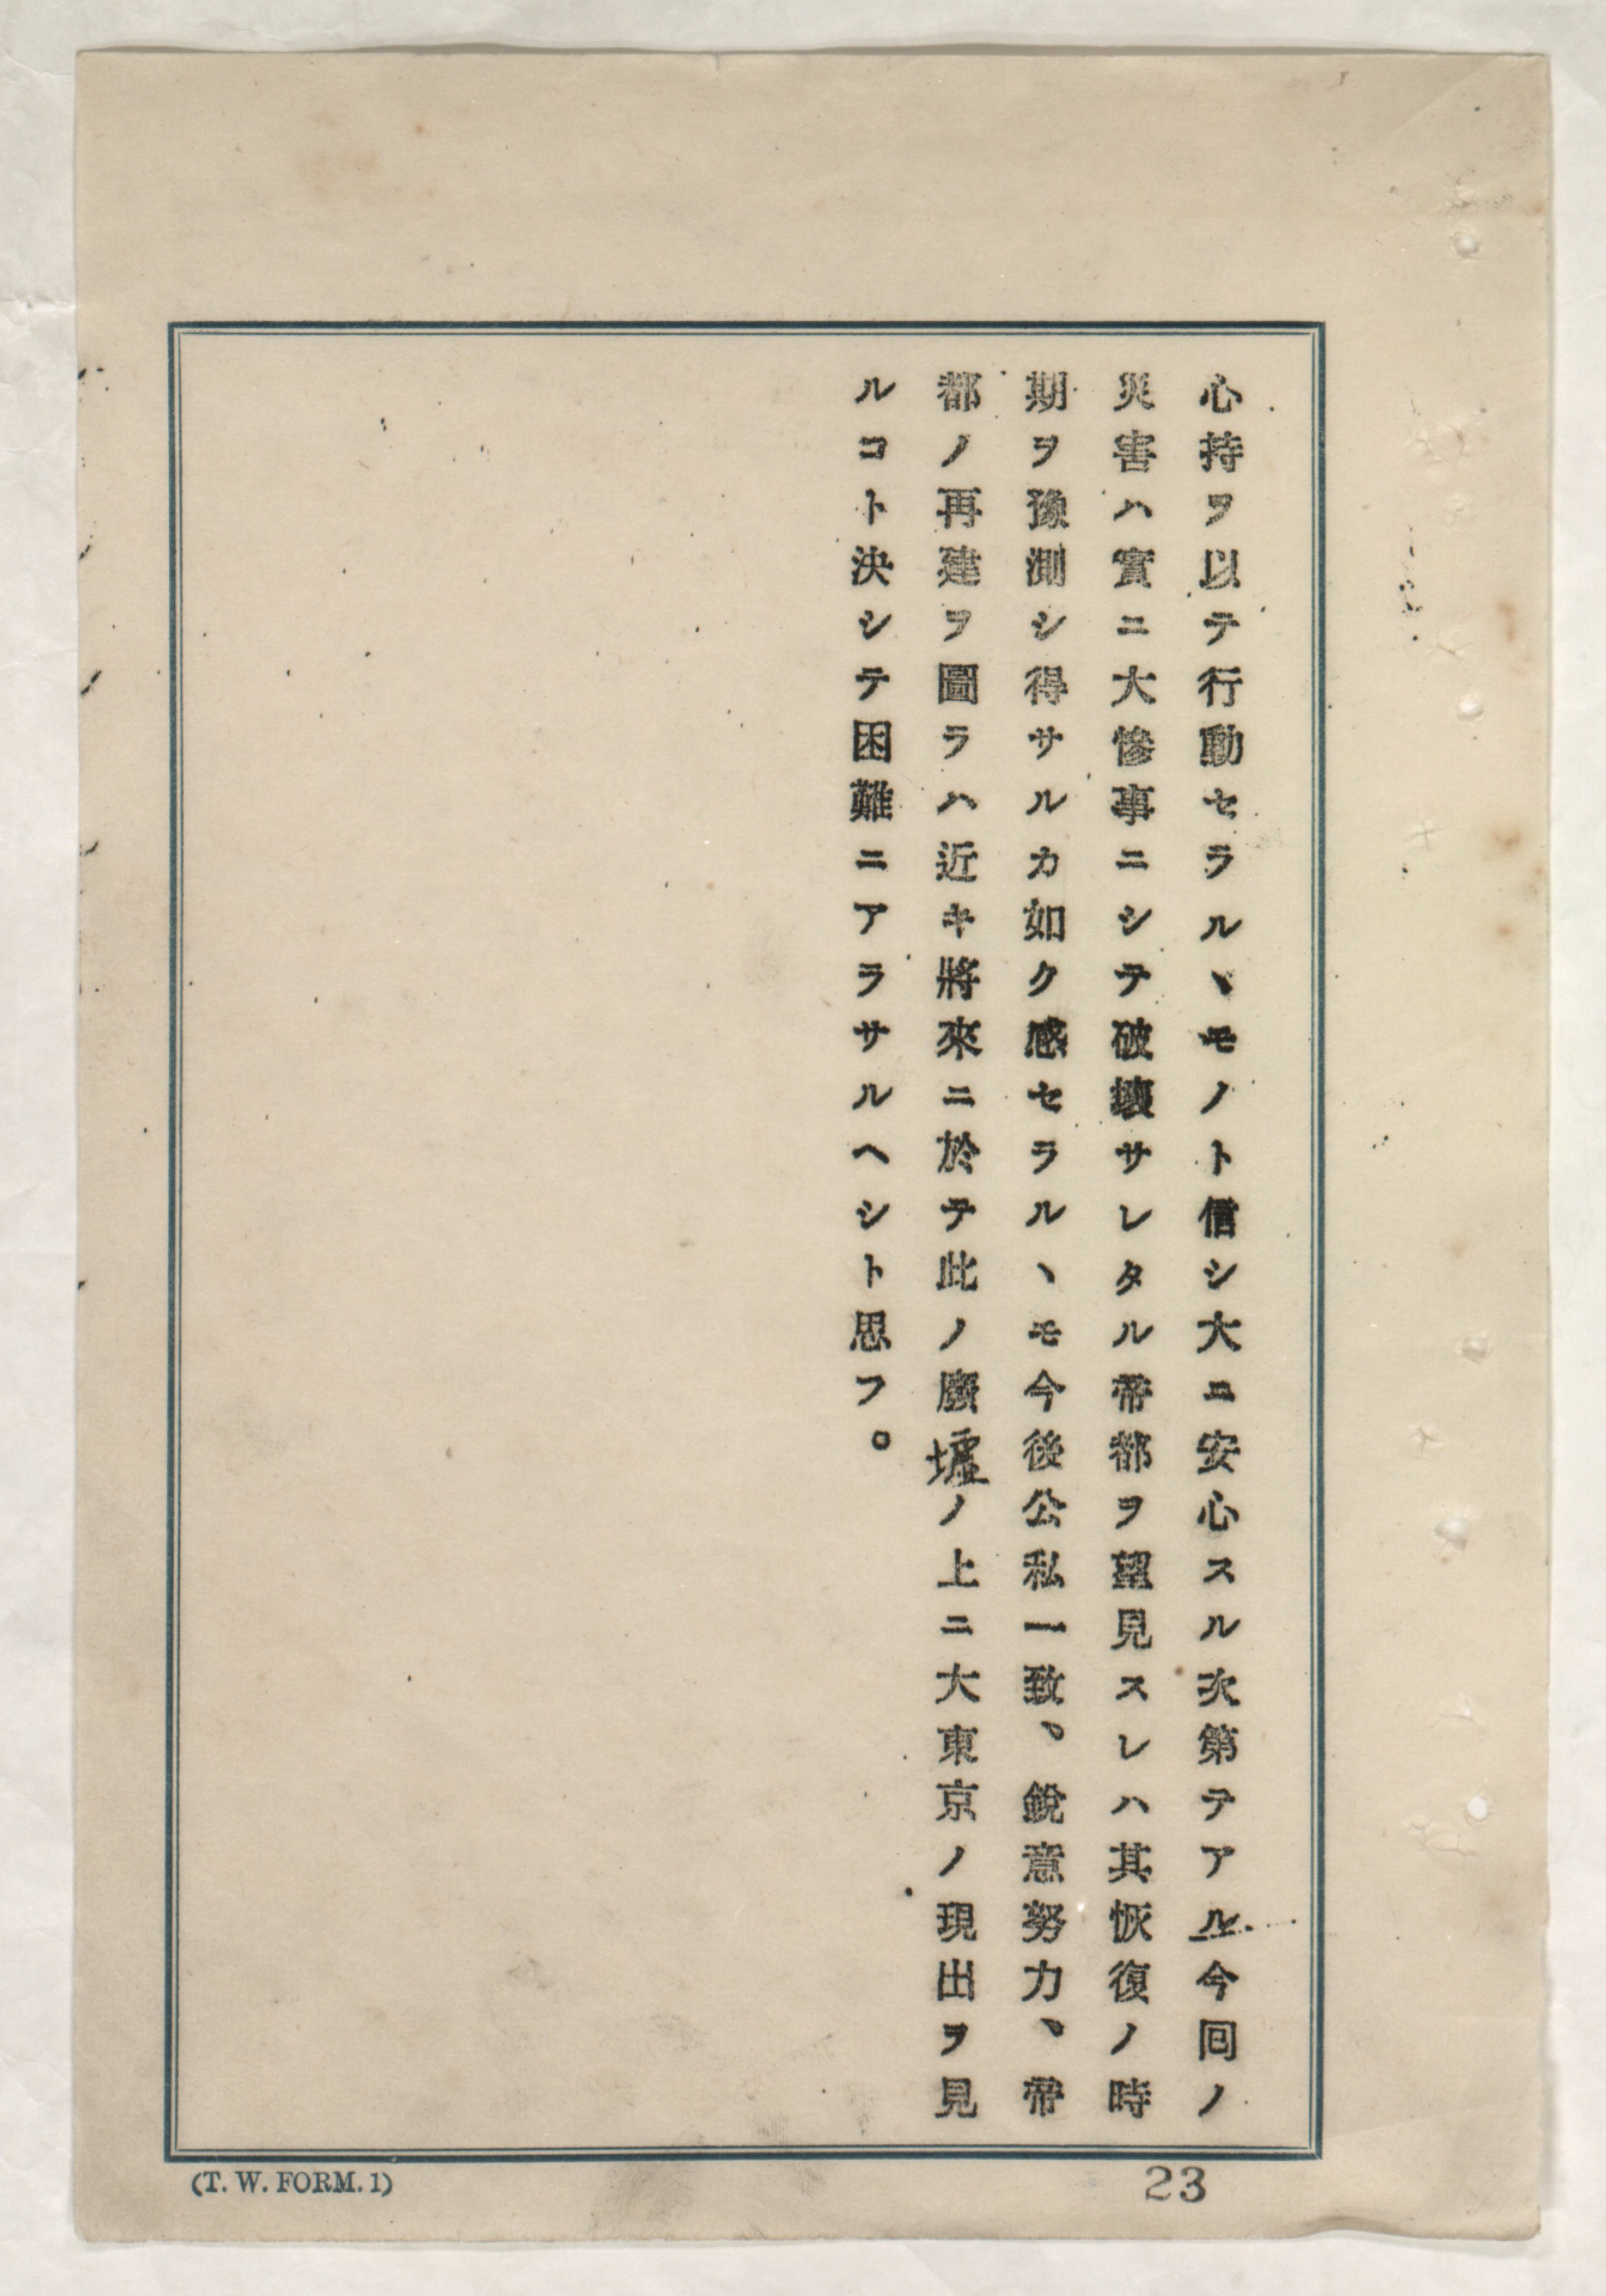 心持ヲ以テ行動セラルヽモノト信シ大ニ安心スル次第テアル今囘ノ
災害ハ實ニ大慘事ニシテ破壞サレタル帝都ヲ望見スレハ其恢復ノ時
期ヲ豫測シ得サルカ如ク感セラルヽモ今後公私一致、銳意努力、帝
都ノ再建ヲ圖ラハ近キ將來ニ於テ此ノ廢墟ノ上ニ大東京ノ現出ヲ見
ルコト決シテ困難ニアラサルヘシト思フ。
(T. W. FORM. 1)
23